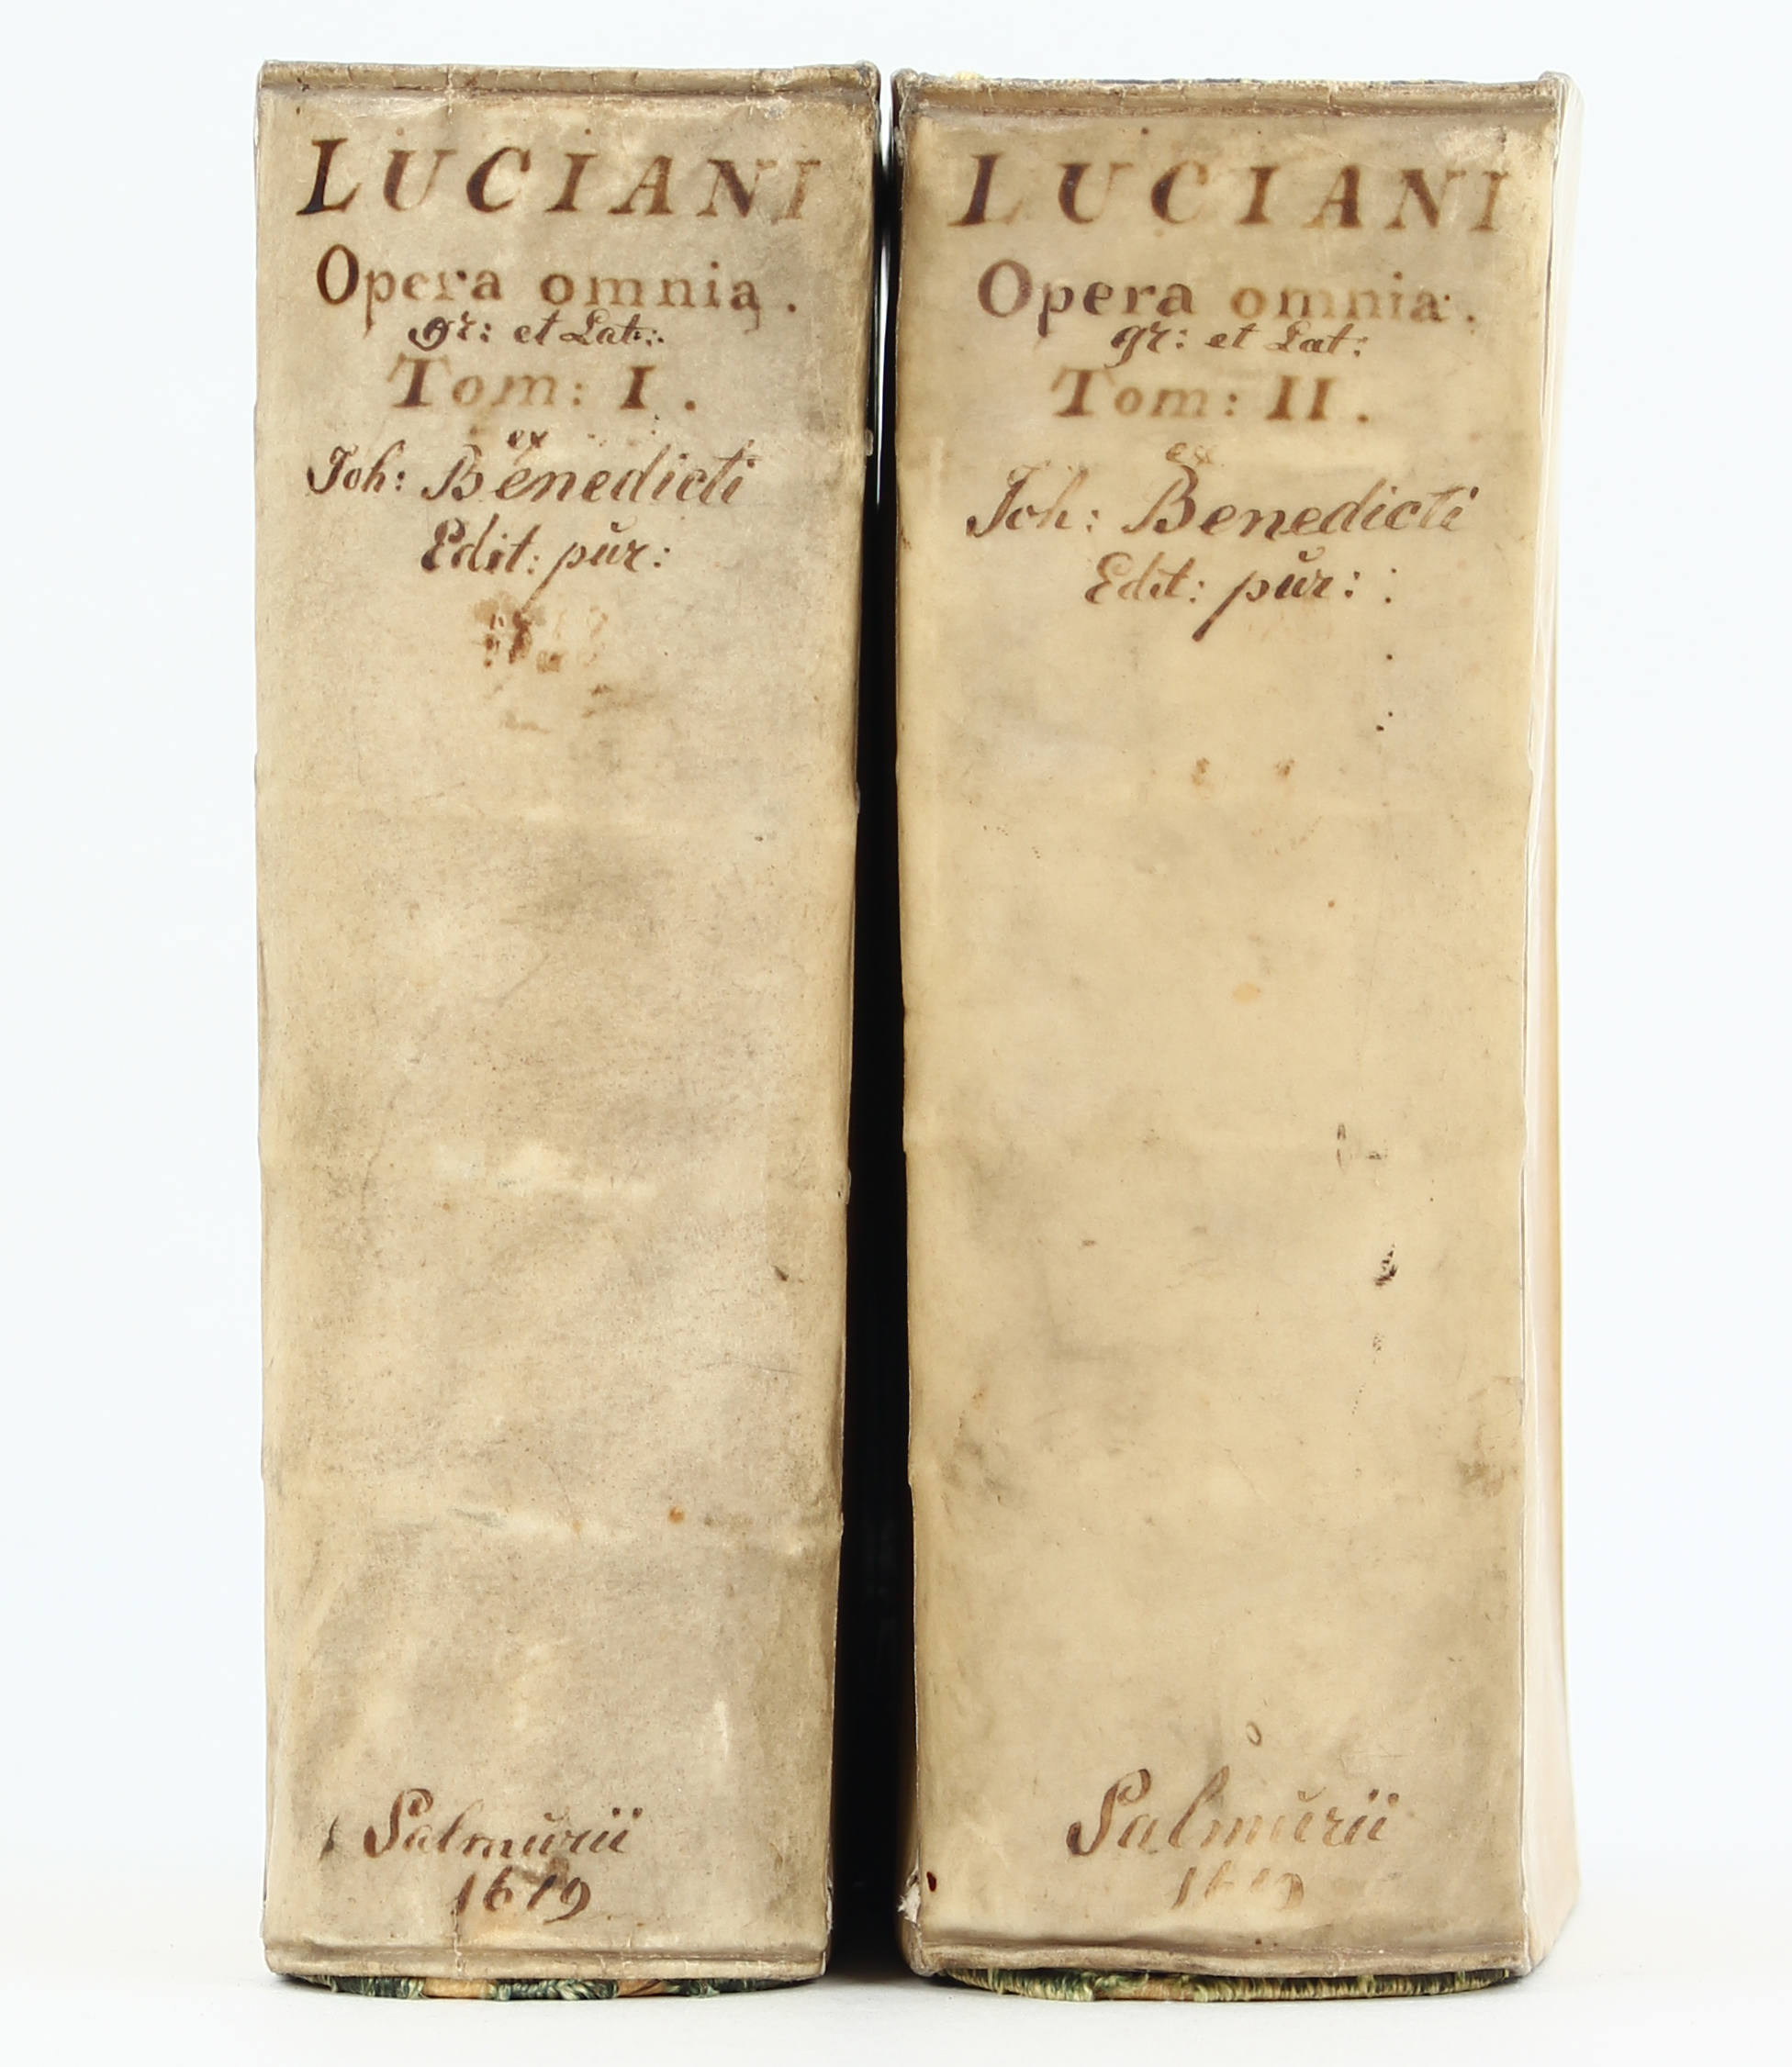 LUCIANI
Opera omnia.
gr: et Lat:
Tom: I.
ex
Joh: Benedicti
Edit: pŭr:
Salmŭrii
1619
LUCIANI
Opera omnia.
gr: et Lat:
Tom: II.
ex
Joh: Benedicti
Edit: pŭr:
Salmŭrii
1619